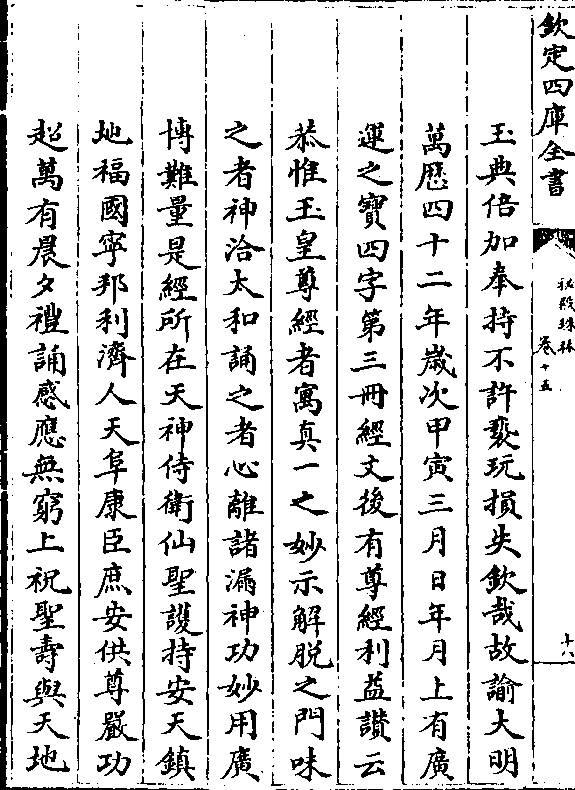 欽定四庫全書
秘殿珠林
卷十五
十六
玉典倍加奉持不許褻玩損失欽哉故諭大明
萬厯四十二年歲次甲寅三月日年月上有廣
運之寶四字第三冊經文後有尊經利益讚云
恭惟玉皇尊經者寓真一之妙示解脱之門味
之者神洽太和誦之者心離諸漏神功妙用廣
博難量是經所在天神侍衛仙聖護持安天鎮
地福國寧邦利濟人天阜康臣庶安供尊嚴功
超萬有晨夕禮誦感應無窮上祝聖壽與天地